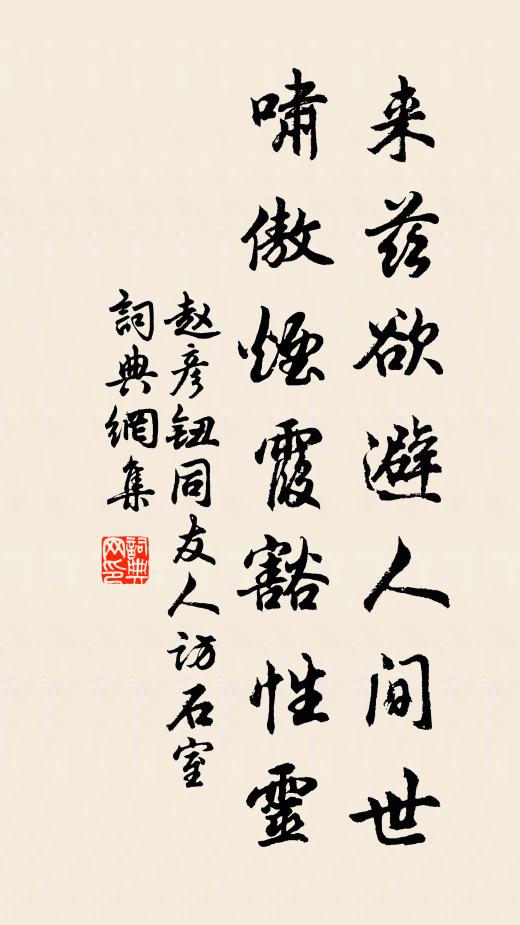 来兹欲避人间世
啸傲烟霞豁性灵
赵彦钮同友人访石室
詞典網集
詞典网印